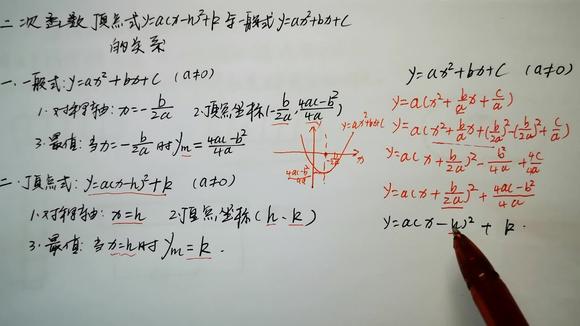 二次函数顶点式y=a(x-h)²+k与一般式y=ax²+bx+c
的关系
一.一般式:y=ax²+bx+c (a≠0)
1.对称轴:x=-b/2a 2.顶点坐标(-b/2a,4ac-b²/4a)
3.最值:当x=-b/2a时ym=4ac-b²/4a
y=ax²+bx+c
x
4ac-b²/4a
二.顶点式:y=a(x-h)²+k (a≠0)
1.对称轴:x=h 2.顶点坐标(h、k)
3.最值:当x=h时ym=k.
y=ax²+bx+c (a≠0)
y=a(x²+b/a x+c/a)
y=a(x²+b/a x+(b/2a)²-(b/2a)²+c/a)
y=a(x+b/2a)²-b²/4a+4ac/4a
y=a(x+b/2a)²+4ac-b²/4a
y=a(x-h)²+k.